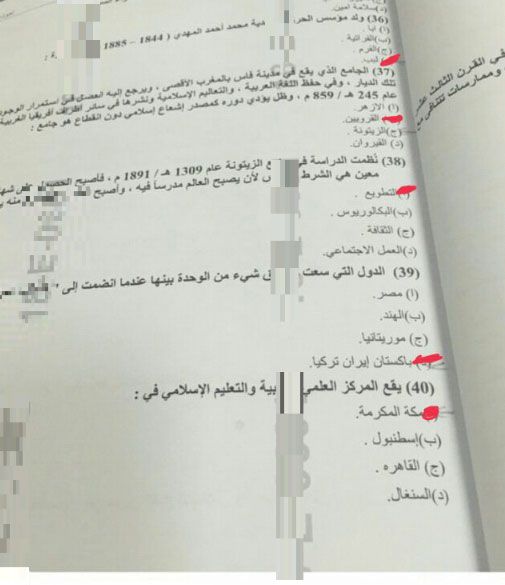 د)سلامة امين.
(36) ولد مؤسس الحر دية محمد أحمد المهدي ( 1844 – 1885
أ) أبا .
ب)الفراتية .
ج)القرم .
لبب.
(37) الجامع الذي يقع في مدينة فاس بالمغرب الأقصى ، ويرجع إليه الفضل في استمرار الوجود
تلك الديار ، وفي حفظ اللغة العربية ، والتعاليم الإسلامية ونشرها في سائر أطراف أفريقيا الغربية
عام 245 هـ / 859 م ، وظل يؤدي دوره كمصدر إشعاع إسلامي دون انقطاع هو جامع :
أ) الأزهر.
القرويين.
ج)الزيتونة .
(د) القيروان.
(38) نُظمت الدراسة في ع الزيتونة عام 1309 هـ / 1891 م ، فأصبح الحصول على شها
معين هي الشرط س لأن يصبح العالم مدرساً فيه ، وأصبح منه ي
التطويع .
(ب)البكالوريوس .
(ج) الثقافة .
(د)العمل الاجتماعي.
(39) الدول التي سعت ق شيء من الوحدة بينها عندما انضمت إلى "
(ا) مصر.
(ب)الهند.
(ج) موريتانيا.
باكستان إيران تركيا.
(40) يقع المركز العلمي بية والتعليم الإسلامي في :
مكة المكرمة.
(ب)إسطنبول .
(ج) القاهره .
(د)السنغال.
في القرن الثالث عشر
وممارسات تتنافى